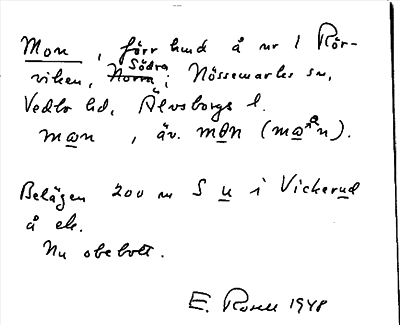 Mon, förr hmd å nr 1 Rör-
viken, Södra Norra; Nössemarks sn,
Vedbo hd, Älvsborgs l.
mωn, äv. mθn (mωᵊn).
Belägen 200 m S u i Vickerud
å ek.
Nu obebott.
E. Rosell 1948